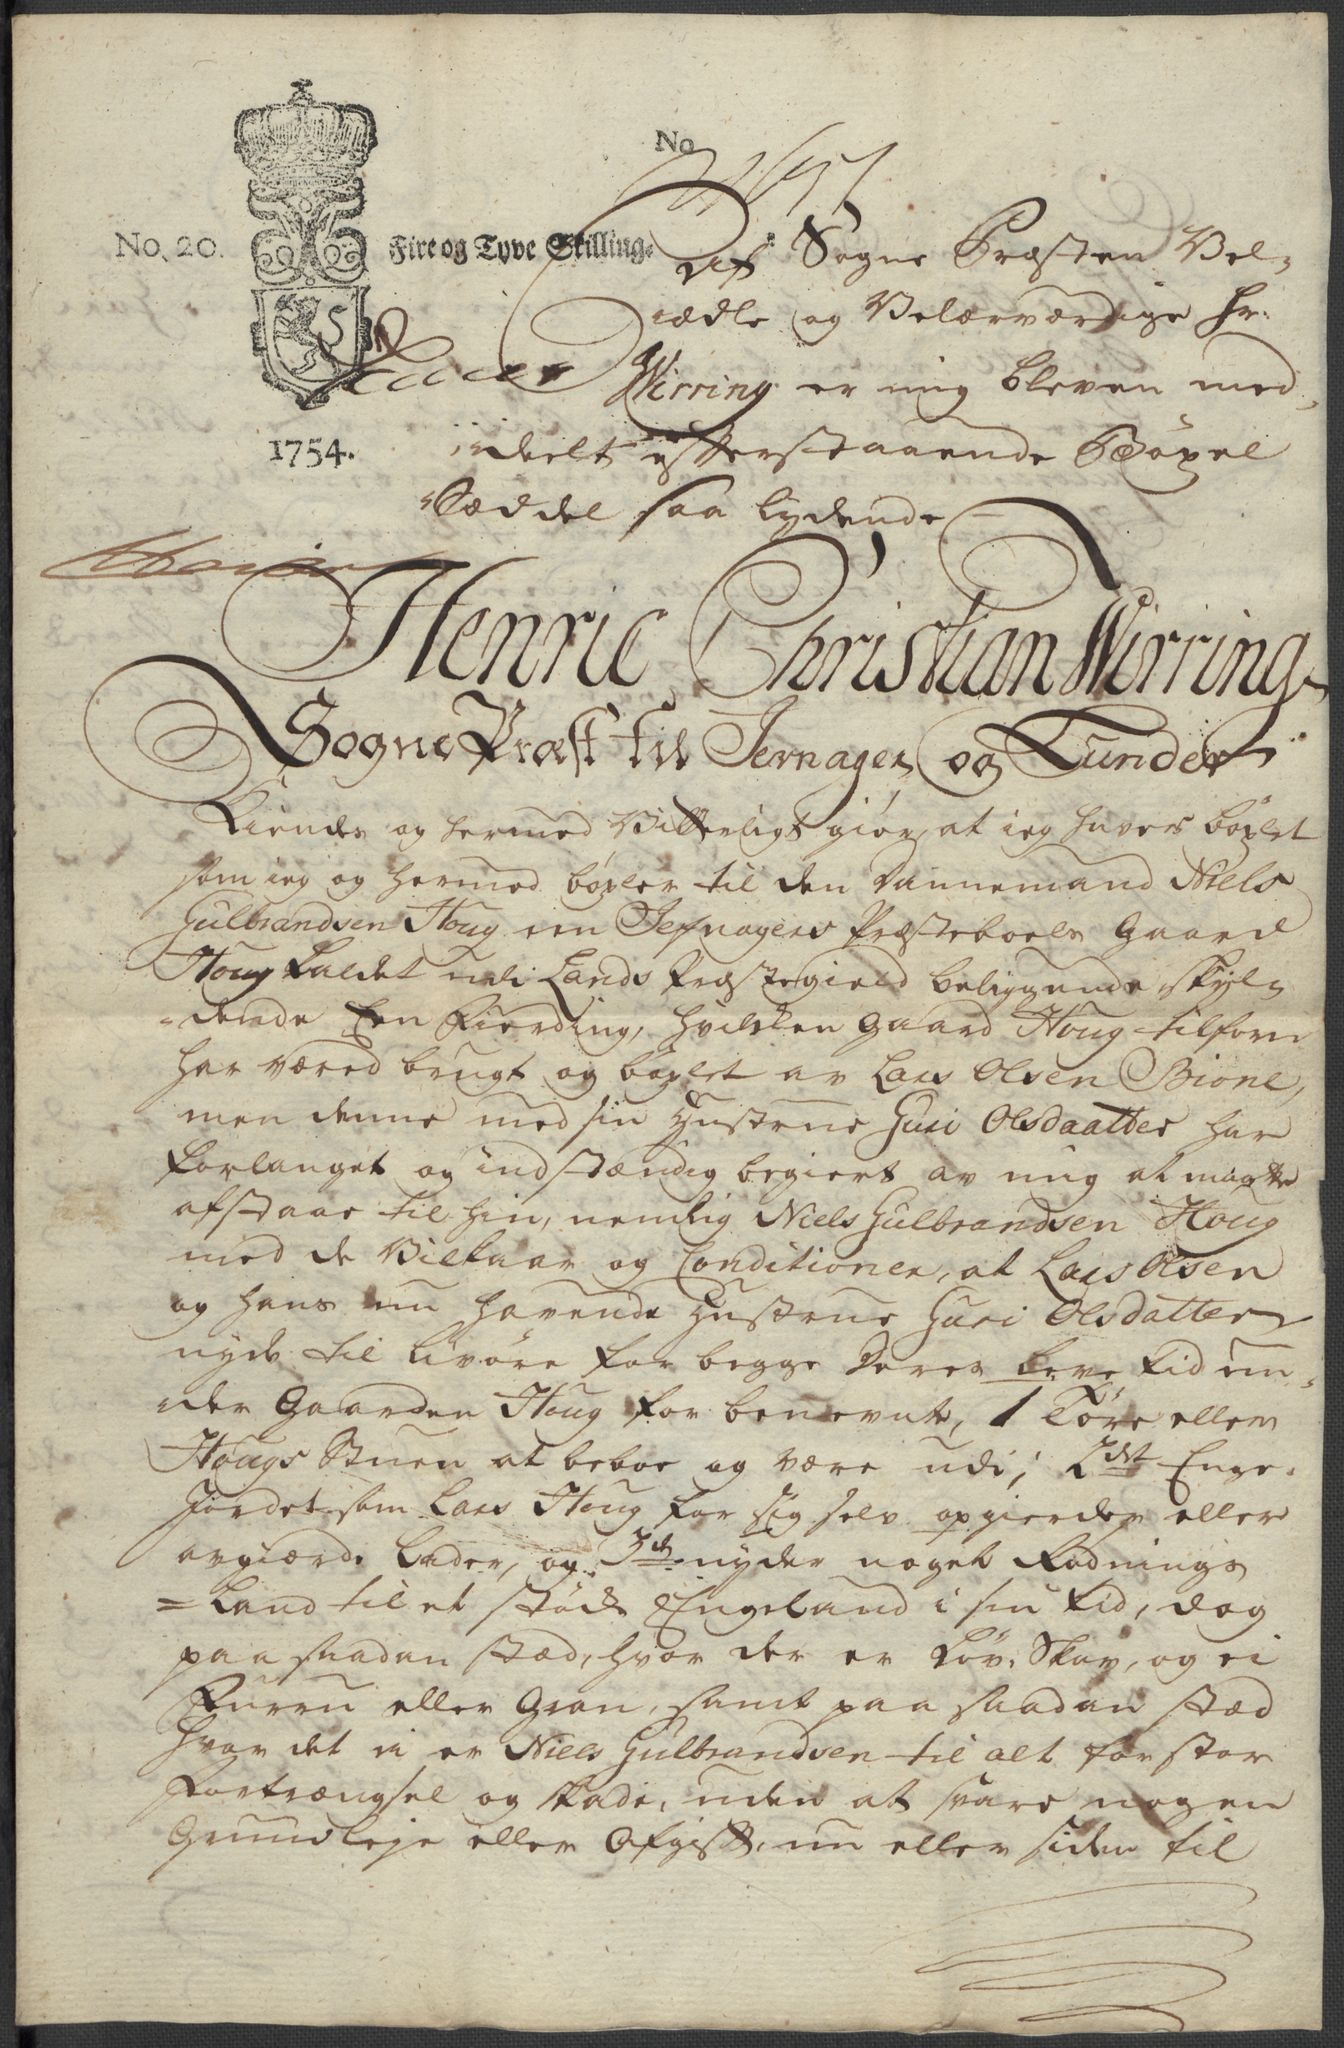 No
No. 20.
Fire og Tyve Skilling.
1754.
Af Sogne Præsten Vel-
ædle og Velærværdige Hr:
Wirring er mig bleven med
deelt efterstaaende Böxel
Sæddel saa lydende
Henric Christian Wirring
Sogne Præst til Jevnager og Lunder
Kiendes og hermed Vitterligt giör, at ieg haver böxlet
som ieg og hermed böxler til den Dannemand Niels
Gulbrandsen Houg een Jefnagers Præsteboels Gaard
Houg kaldet udi Lands Præstegield beliggende skyl-
dende Een Fierding, hvilken Gaard Houg tilforn
har været brugt og böxlet av Lars Olsen Bione,
men denne med sin Hustrue Guri Olsdaatter har
forlanget og indstændig begiert av mig at maatte
afstaae til hin, nemlig Niels Gulbrandsen Houg
med de Vilkaar og Conditioner, at Lars Olsen
og hans nu havende Hustrue Guri Olsdatter
nyde til livöre for begge deres leve tid un-
der Gaarden Houg for benevnte, 1 Töre eller
Hougs Stuen at beboe og være udi; 2det Enge-
Jordet som Lars Houg for sig selv opgierder eller
avgiærde lader, og 3die nyder noget Rödnings
=Land til et stöcke Engeland i sin tid, dog
paa saadan stæd, hvor der er Löv-Skov, og ei
Furru eller Gran, samt paa saadan stæd
hvor det ei er Niels Gulbrandsen til alt for stor
Fortrængsel og skade, uden at svare nogen
Grundleje eller Afgift, nu eller siden til